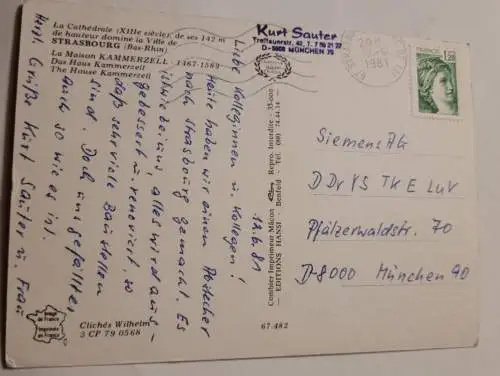 La Cathédrale (XIIIe siècle), de ses 142 m
de hauteur domine la Ville de
STRASBOURG (Bas-Rhin)
La Maison KAMMERZELL 1467-1589
Das Haus Kammerzell
The House Kammerzell
Kurt Sauter
D-8000 MÜNCHEN 70
12.6.81
Liebe Kolleginnen u. Kollegen!
Heute haben wir einen Abstecher
nach Strasbourg gemacht. Es
ist wie bei uns, alles wird aus-
gebessert u. renoviert, so
daß sehr viele Baustellen
sind. Doch uns gefällt es
auch so wie es ist.
Herzl. Grüße Kurt Sauter u. Frau
Image
de France
Imprimée
de France
Clichés Wilhelm
3 CP 79 0568
Combier Imprimeur Mâcon
Repro. Interdite - 35-000
— EDITIONS HANSI Benfeld — Tel. (88) 74.44.14 —
67-482
1981
FRANCE
1,20
Siemens AG
DDr VS TK E LuV
Pfälzerwaldstr. 70
D-8000 München 90